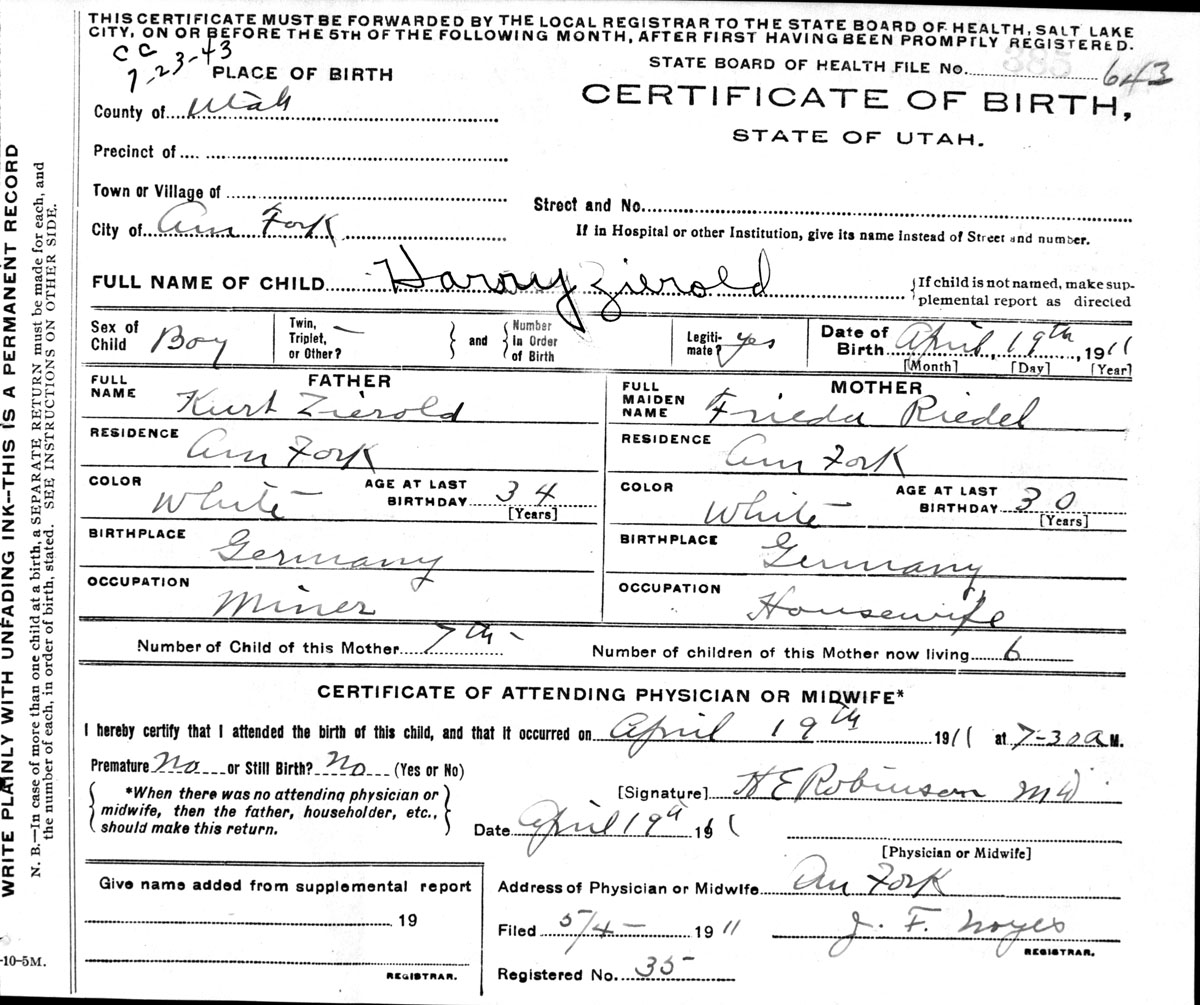 THIS CERTIFICATE MUST BE FORWARDED BY THE LOCAL REGISTRAR TO THE STATE BOARD OF HEALTH, SALT LAKE
CITY, ON OR BEFORE THE 5TH OF THE FOLLOWING MONTH, AFTER FIRST HAVING BEEN PROMPTLY REGISTERED.
CC
7-23-43
STATE BOARD OF HEALTH FILE No. 385 643
PLACE OF BIRTH
CERTIFICATE OF BIRTH,
STATE OF UTAH.
County of Utah
Precinct of
Town or Village of
Street and No.
City of Am Fork
If in Hospital or other Institution, give its name instead of Street and number.
FULL NAME OF CHILD Harry Zierold
{If child is not named, make sup-
plemental report as directed
Sex of Child Boy
Twin, Triplet, or Other? —
} and { Number in Order of Birth
Legiti-mate? yes
Date of Birth April, 19th, 1911
[Month] [Day] [Year]
FATHER
FULL NAME Kurt Zierold
RESIDENCE Am Fork
COLOR White
AGE AT LAST BIRTHDAY 34
[Years]
BIRTHPLACE Germany
OCCUPATION Miner
MOTHER
FULL MAIDEN NAME Frieda Riedel
RESIDENCE Am Fork
COLOR White
AGE AT LAST BIRTHDAY 30
[Years]
BIRTHPLACE Germany
OCCUPATION Housewife
Number of Child of this Mother 7th -
Number of children of this Mother now living 6
CERTIFICATE OF ATTENDING PHYSICIAN OR MIDWIFE*
I hereby certify that I attended the birth of this child, and that it occurred on April 19th 1911 at 7-30 a M.
Premature No or Still Birth? No (Yes or No)
{ *When there was no attending physician or
midwife, then the father, householder, etc.,
should make this return. }
[Signature] H E Robinson MD
Date April 19th 1911
[Physician or Midwife]
Give name added from supplemental report
19
REGISTRAR.
Address of Physician or Midwife Am Fork
Filed 5/4 - 1911 J. F. Noyes
REGISTRAR.
Registered No. 35
WRITE PLAINLY WITH UNFADING INK--THIS IS A PERMANENT RECORD
N. B.—In case of more than one child at a birth, a SEPARATE RETURN must be made for each, and
the number of each, in order of birth, stated. SEE INSTRUCTIONS ON OTHER SIDE.
-10-5M.